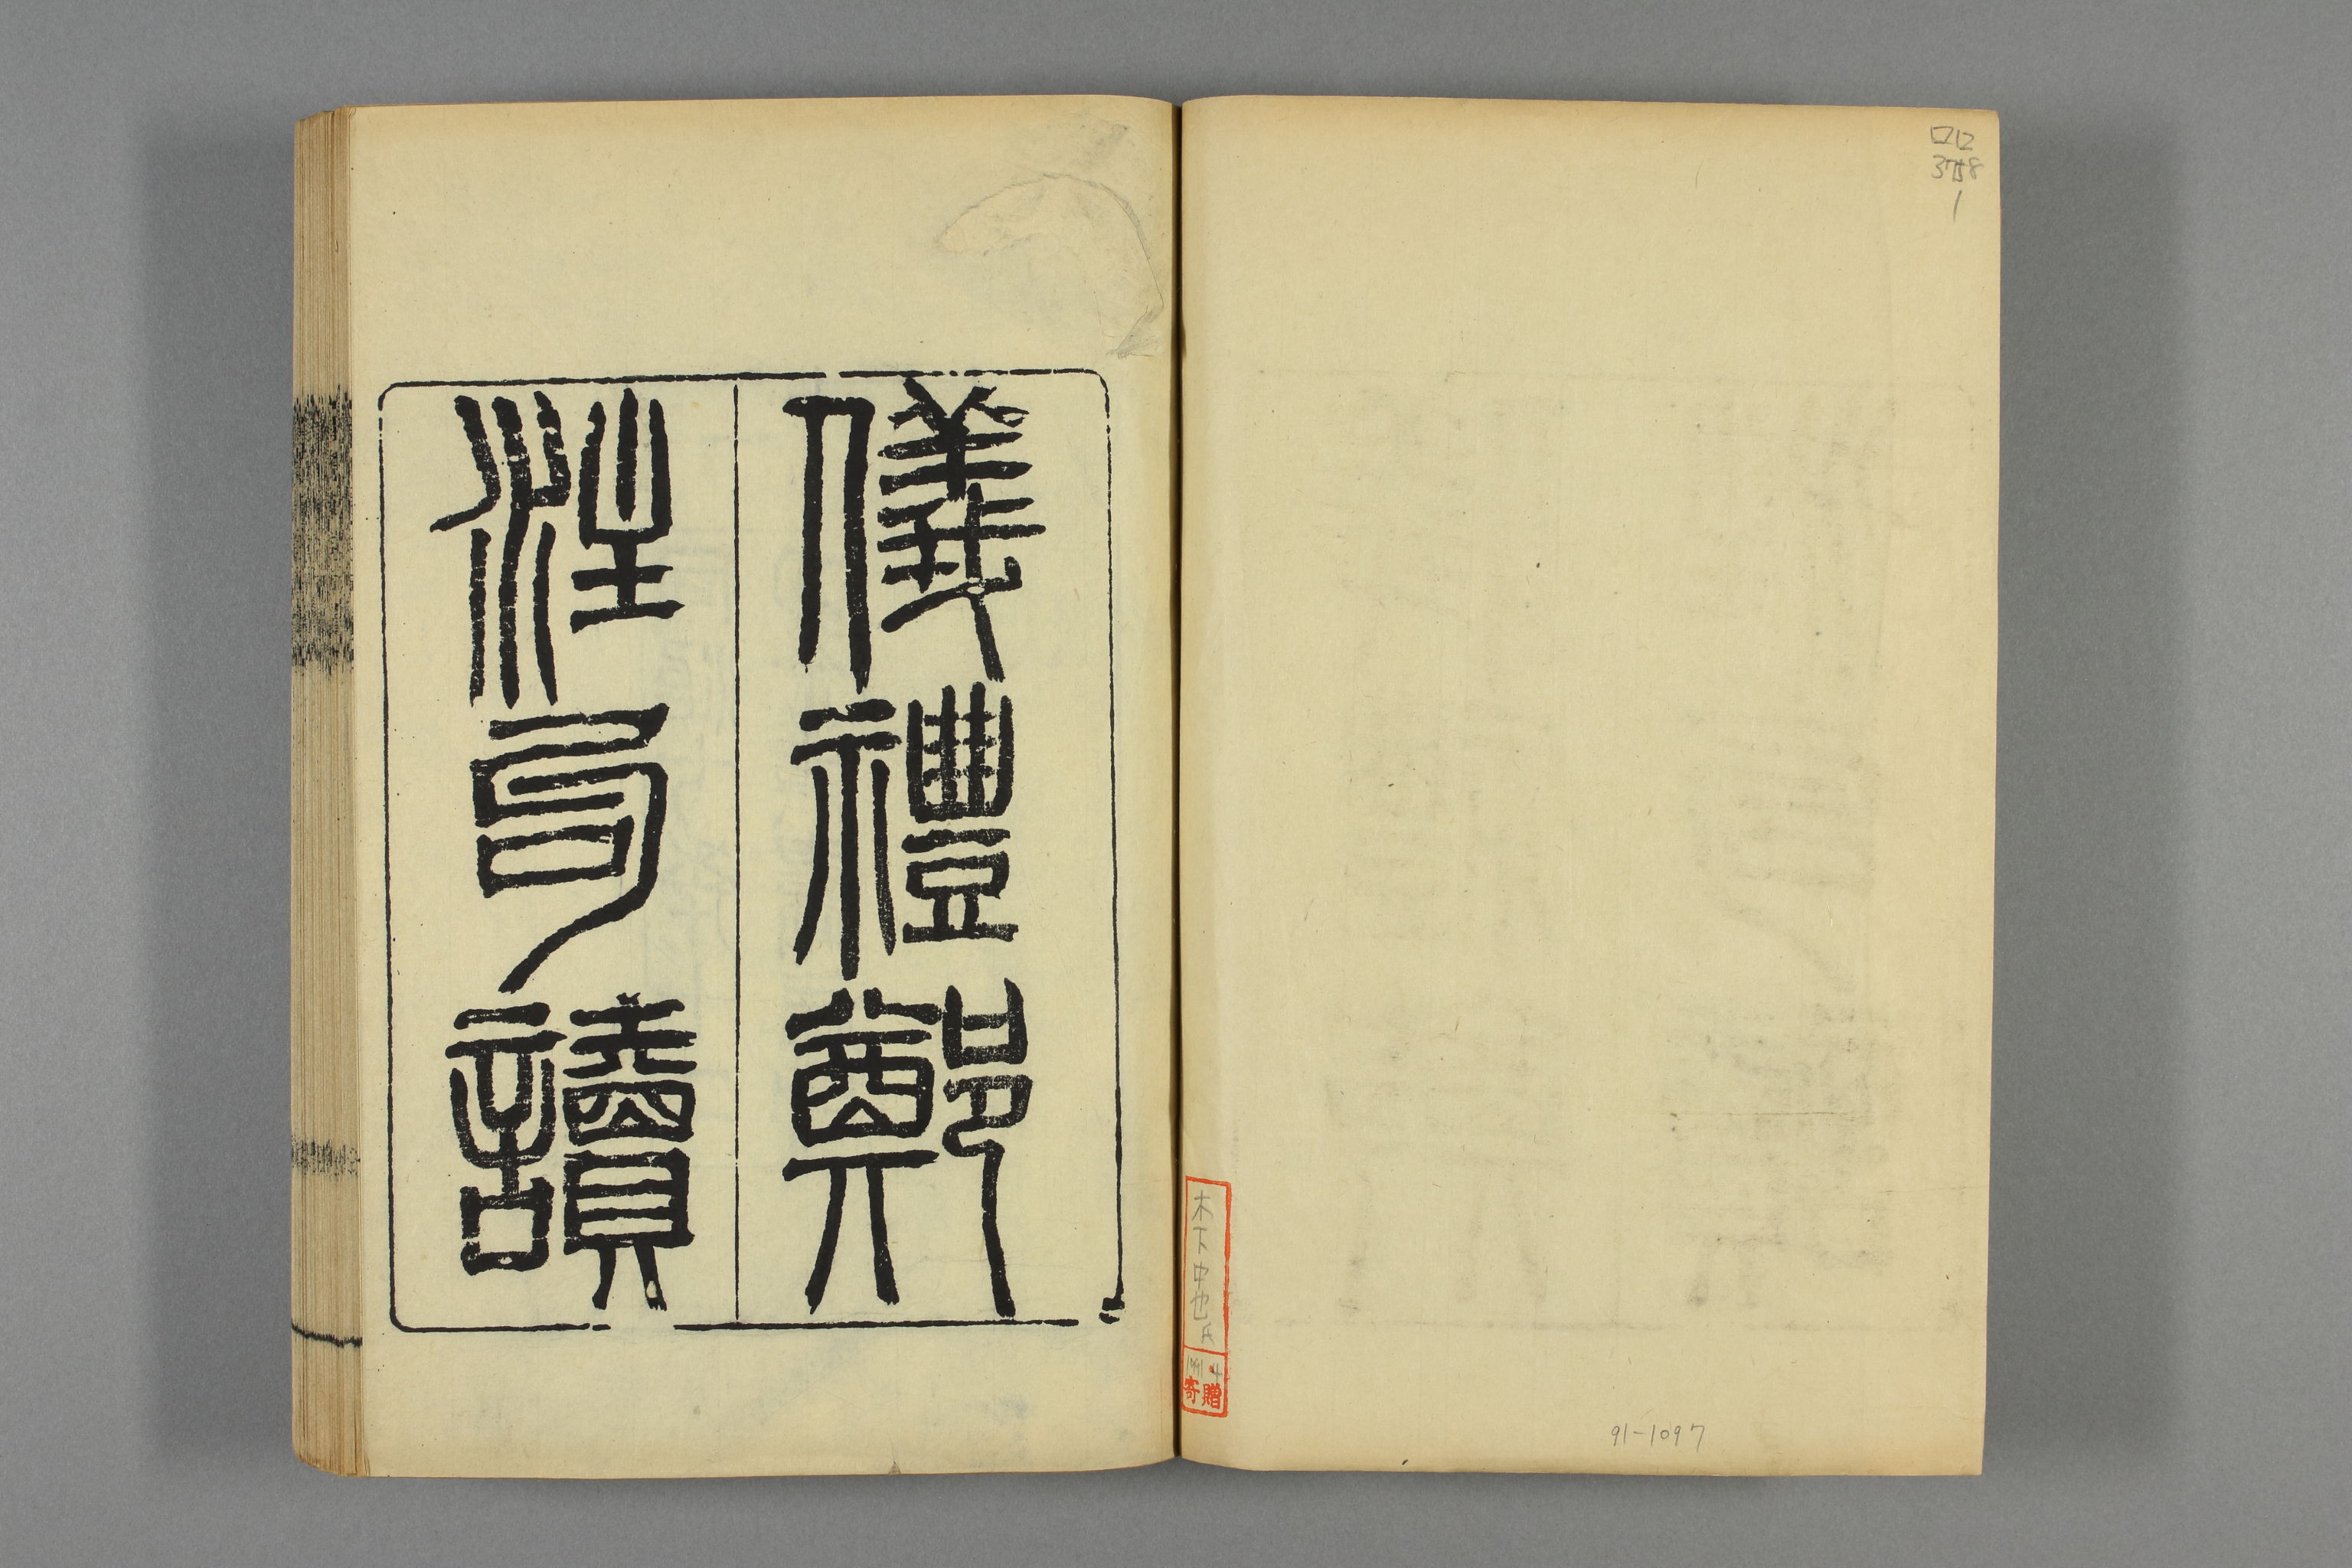 ロ12
3758
1
木下中也氏
1991 4
寄贈
91-1097
儀禮鄭
注句讀